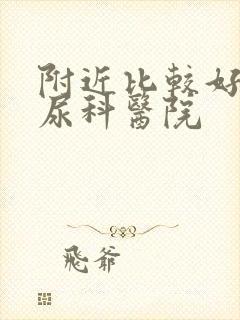 附近比較好
尿科醫院
飛爺